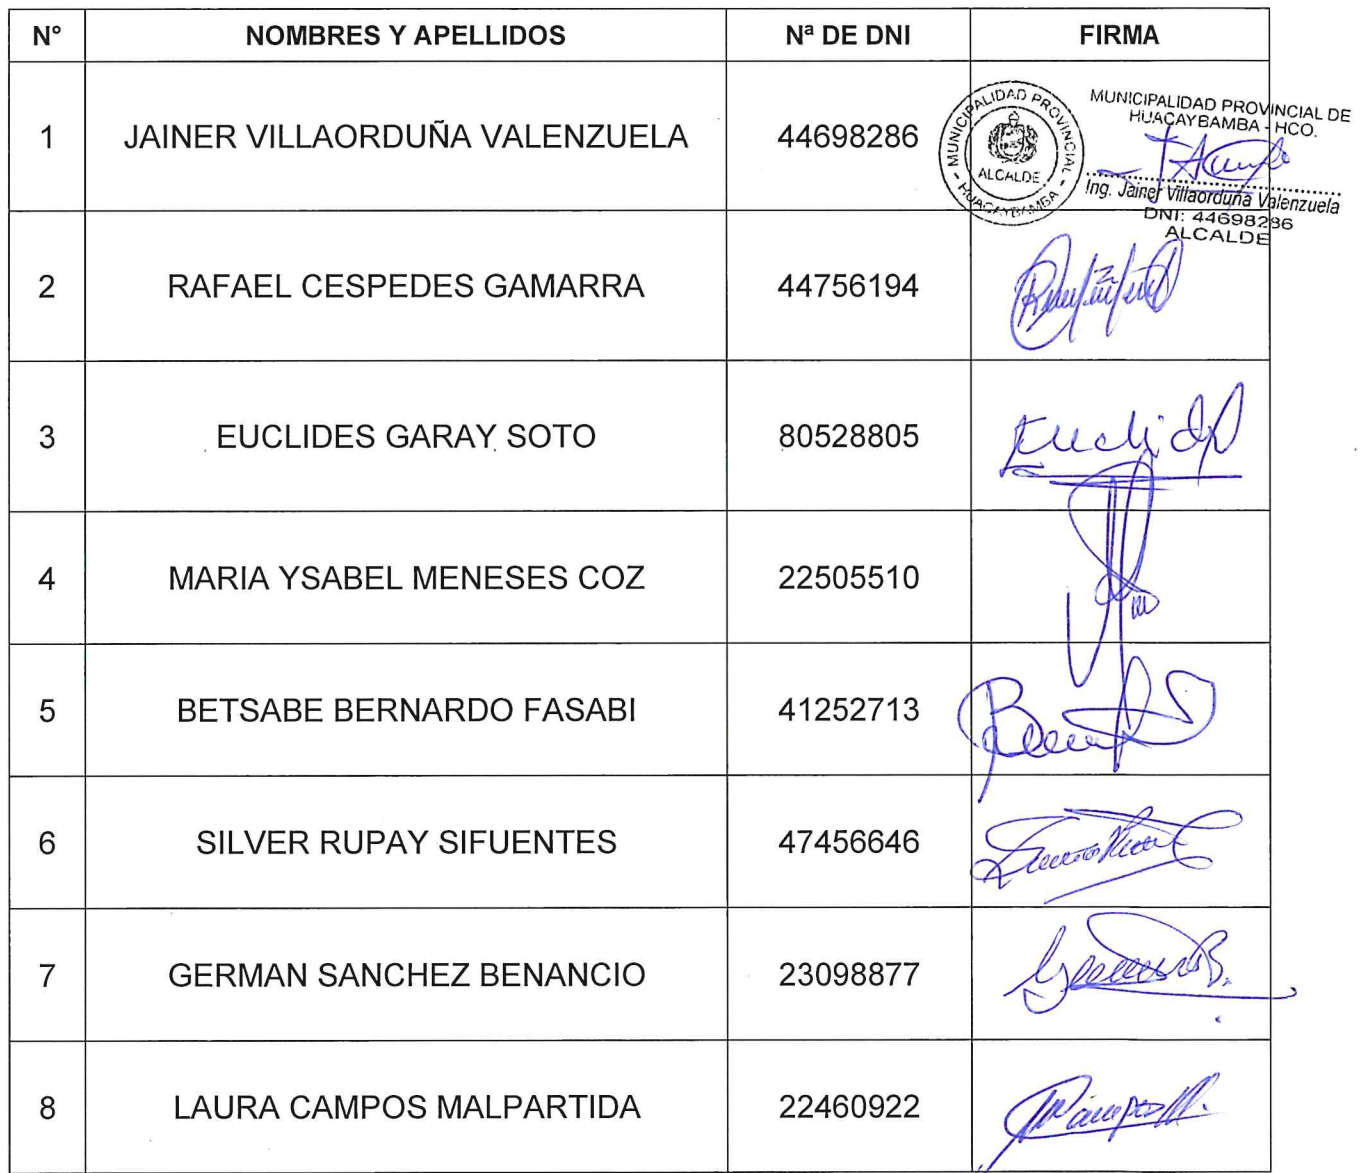 N° NOMBRES Y APELLIDOS Nª DE DNI FIRMA
1 JAINER VILLAORDUÑA VALENZUELA 44698286
MUNICIPALIDAD PROVINCIAL - HUACAYBAMBA -
ALCALDE
MUNICIPALIDAD PROVINCIAL DE
HUACAYBAMBA - HCO.
Ing. Jainer Villaorduña Valenzuela
DNI: 44698286
ALCALDE
2 RAFAEL CESPEDES GAMARRA 44756194
3 EUCLIDES GARAY SOTO 80528805
4 MARIA YSABEL MENESES COZ 22505510
5 BETSABE BERNARDO FASABI 41252713
6 SILVER RUPAY SIFUENTES 47456646
7 GERMAN SANCHEZ BENANCIO 23098877
8 LAURA CAMPOS MALPARTIDA 22460922